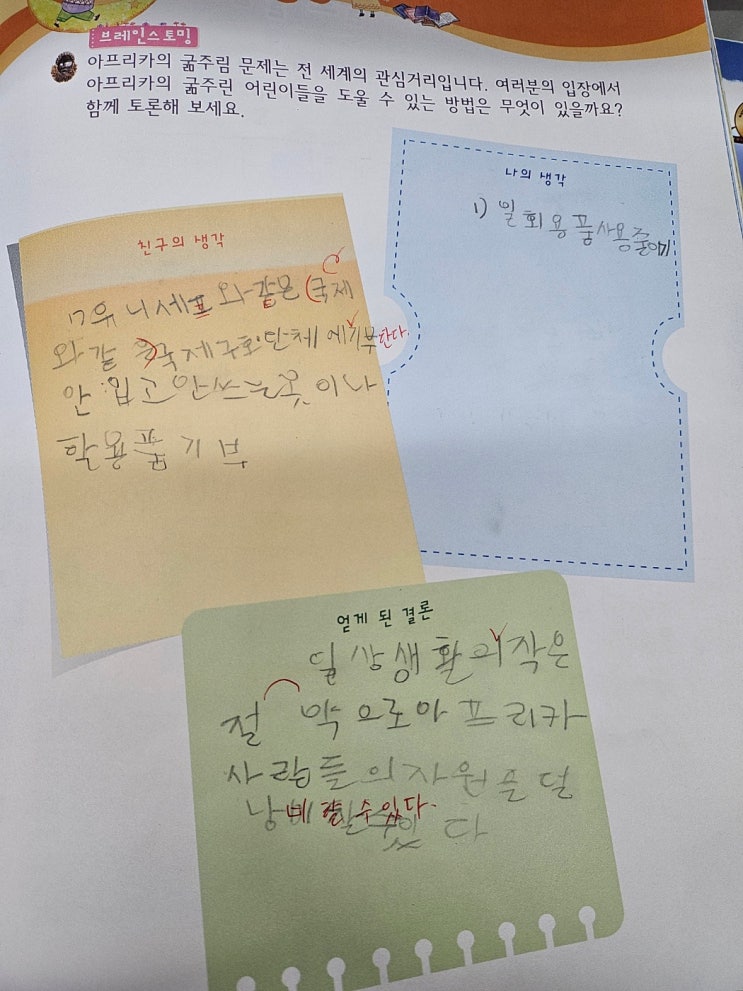 브레인스토밍
아프리카의 굶주림 문제는 전 세계의 관심거리입니다. 여러분의 입장에서
아프리카의 굶주린 어린이들을 도울 수 있는 방법은 무엇이 있을까요?
함께 토론해 보세요.
친구의 생각
유니세프와 같은 (국제
와 같 국제구호단체에 기부한다.
안 입고 안쓰는 옷이나
학용품 기부
나의 생각
1) 일회용품사용줄이기
얻게 된 결론
일상생활의 작은
절 약으로아프리카
사람들의자원을 덜
낭비할 수 있다.
다